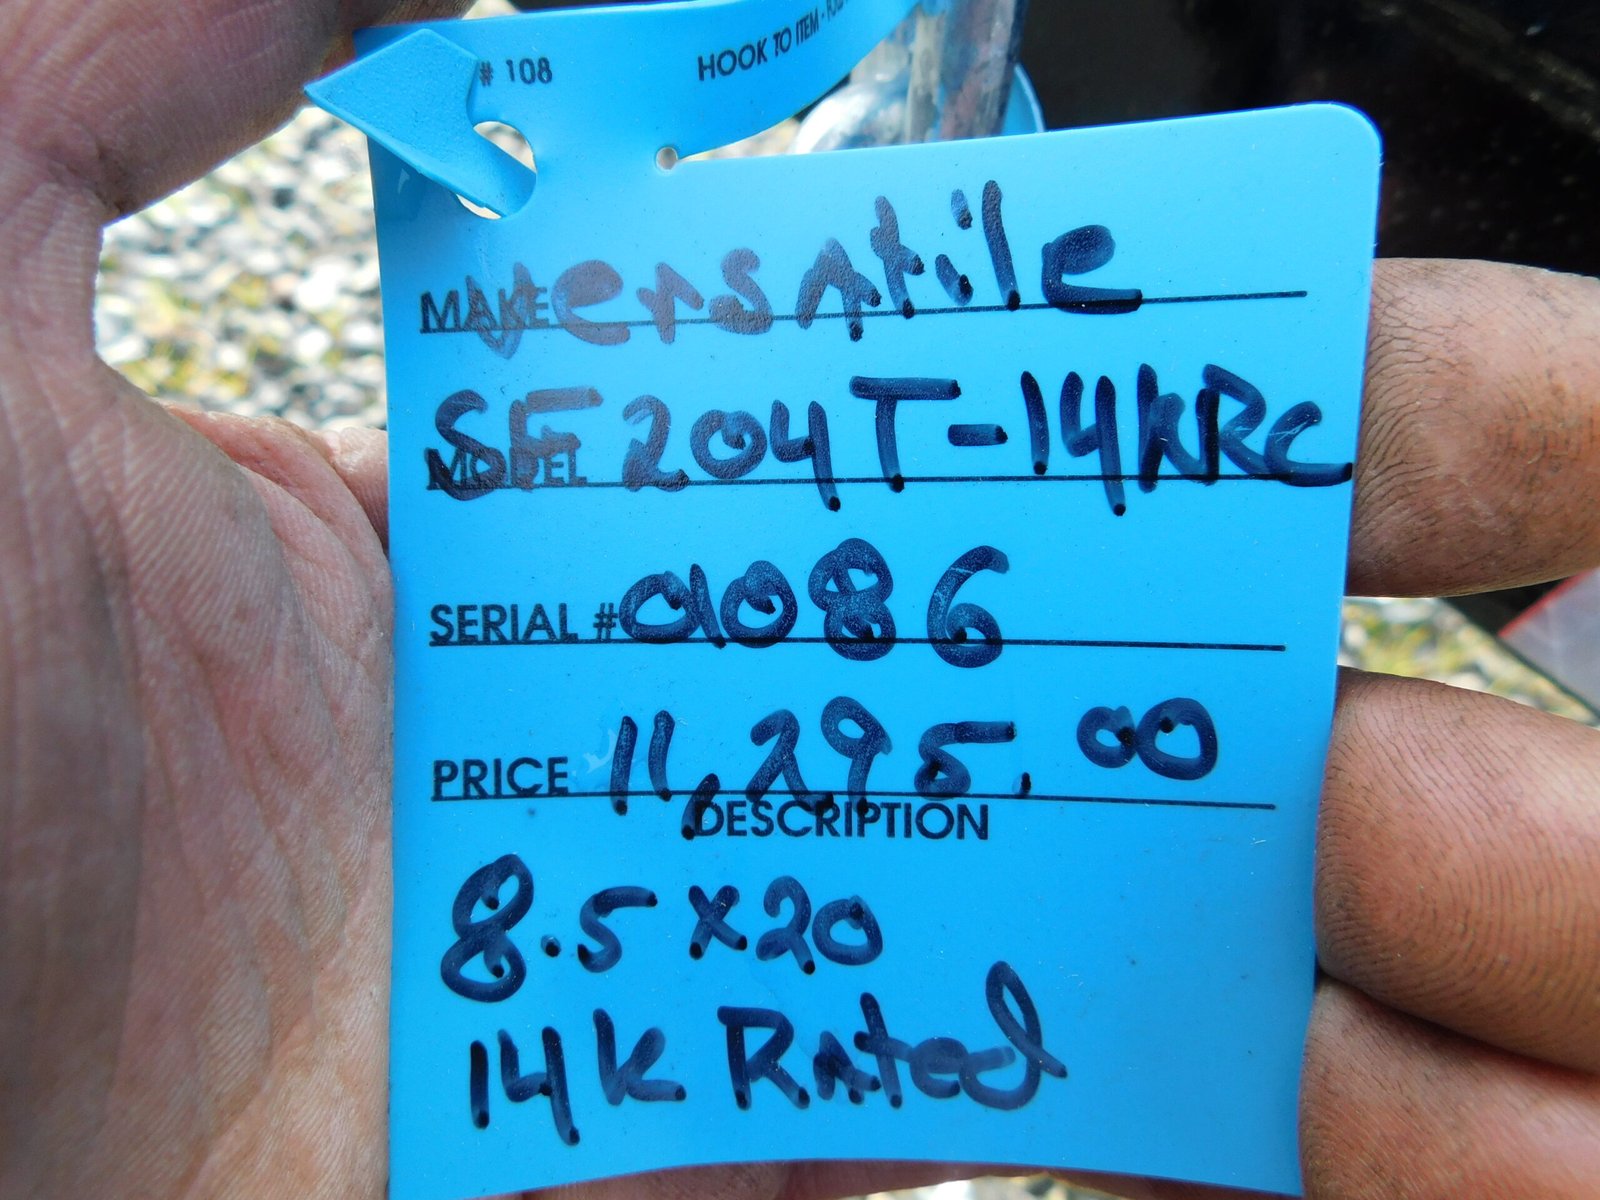 # 108 HOOK TO ITEM -
MAKE Versatile
MODEL SF204T-14KRC
SERIAL # a1086
PRICE 11,295.00
DESCRIPTION
8.5 x 20
14k Rated